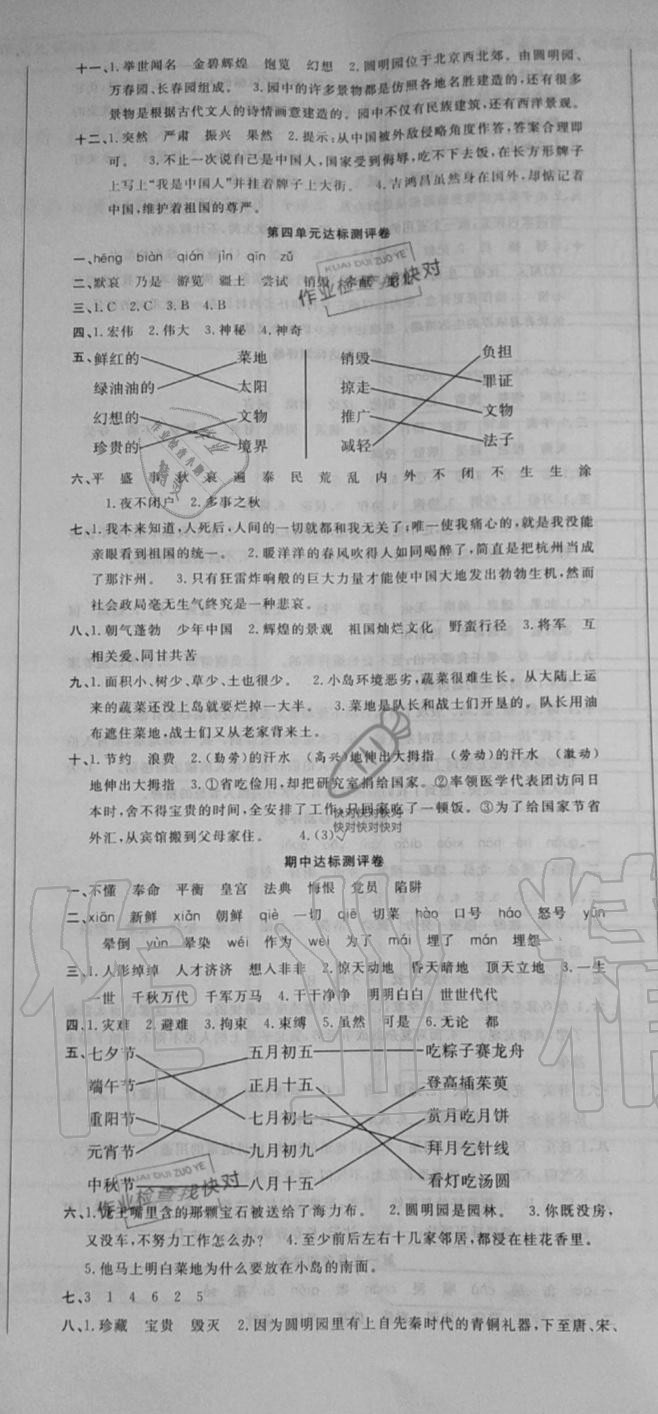 十一、1.举世闻名 金碧辉煌 饱览 幻想 2.圆明园位于北京西北郊。由圆明园、
万春园、长春园组成。 3.园中的许多景物都是仿照各地名胜建造的,还有很多
景物是根据古代文人的诗情画意建造的。园中不仅有民族建筑,还有西洋景观。
十二、1.突然 严肃 振兴 果然 2.提示:从中国被外敌侵略角度作答,答案合理即
可。 3.不止一次说自己是中国人,国家受到侮辱,吃不下去饭,在长方形牌子
上写上“我是中国人”并挂着牌子上大街。 4.吉鸿昌虽然身在国外,却惦记着
中国,维护着祖国的尊严。
第四单元达标测评卷
一、hēng biàn qián jìn qīn zǔ
二、默哀 乃是 游览 疆土 尝试 销毁
三、1.C 2.C 3.B 4.B
四、1.宏伟 2.伟大 3.神秘 4.神奇
五、鲜红的 菜地 销毁 负担
绿油油的 太阳 掠走 罪证
幻想的 文物 推广 文物
珍贵的 境界 减轻 法子
六、平 盛 事 秋 哀 遍 泰 民 荒 乱 内 外 不 闭 不 生 生 涂
1.夜不闭户 2.多事之秋
七、1.我本来知道,人死后,人间的一切就都和我无关了;唯一使我痛心的,就是我没能
亲眼看到祖国的统一。 2.暖洋洋的春风吹得人如同喝醉了,简直是把杭州当成
了那汴州。 3.只有狂雷炸响般的巨大力量才能使中国大地发出勃勃生机,然而
社会政局毫无生气终究是一种悲哀。
八、1.朝气蓬勃 少年中国 2.辉煌的景观 祖国灿烂文化 野蛮行径 3.将军 互
相关爱、同甘共苦
九、1.面积小、树少、草少、土也很少。 2.小岛环境恶劣,蔬菜很难生长。从大陆上运
来的蔬菜还没上岛就要烂掉一大半。 3.菜地是队长和战士们开垦的。队长用油
布遮住菜地,战士们又从老家背来土。
十、1.节约 浪费 2.(勤劳)的汗水 (高兴)地伸出大拇指 (劳动)的汗水 (激动)
地伸出大拇指 3.①省吃俭用,却把研究室捐给国家。②率领医学代表团访问日
本时,舍不得宝贵的时间,全安排了工作,只回家吃了一顿饭。③为了给国家节省
外汇,从宾馆搬到父母家住。 4.(3)√
期中达标测评卷
一、不懂 奉命 平衡 皇宫 法典 悔恨 党员 陷阱
二、xiān 新鲜 xiǎn 朝鲜 qiè 一切 qiē 切菜 hào 口号 háo 怒号 yūn
晕倒 yùn 晕染 wéi 作为 wèi 为了 mái 埋了 mán 埋怨
三、1.人影绰绰 人才济济 想入非非 2.惊天动地 昏天暗地 顶天立地 3.一生
一世 千秋万代 千军万马 4.干干净净 明明白白 世世代代
四、1.灾难 2.避难 3.拘束 4.束缚 5.虽然 可是 6.无论 都
五、七夕节 五月初五 吃粽子赛龙舟
端午节 正月十五 登高插茱萸
重阳节 七月初七 赏月吃月饼
元宵节 九月初九 拜月乞针线
中秋节 八月十五 看灯吃汤圆
六、1.龙王嘴里含的那颗宝石被送给了海力布。 2.圆明园是园林。 3.你既没房,
又没车,不努力工作怎么办? 4.至少前后左右十几家邻居,都浸在桂花香里。
5.他马上明白菜地为什么要放在小岛的南面。
七、3 1 4 6 2 5
八、1.珍藏 宝贵 毁灭 2.因为圆明园里有上自先秦时代的青铜礼器,下至唐、宋、
KUAI DUI ZUO YE
作业检查找快对
快对快对快对
快对快对快对
KUAI DUI ZUO YE
作业检查找快对
作业精